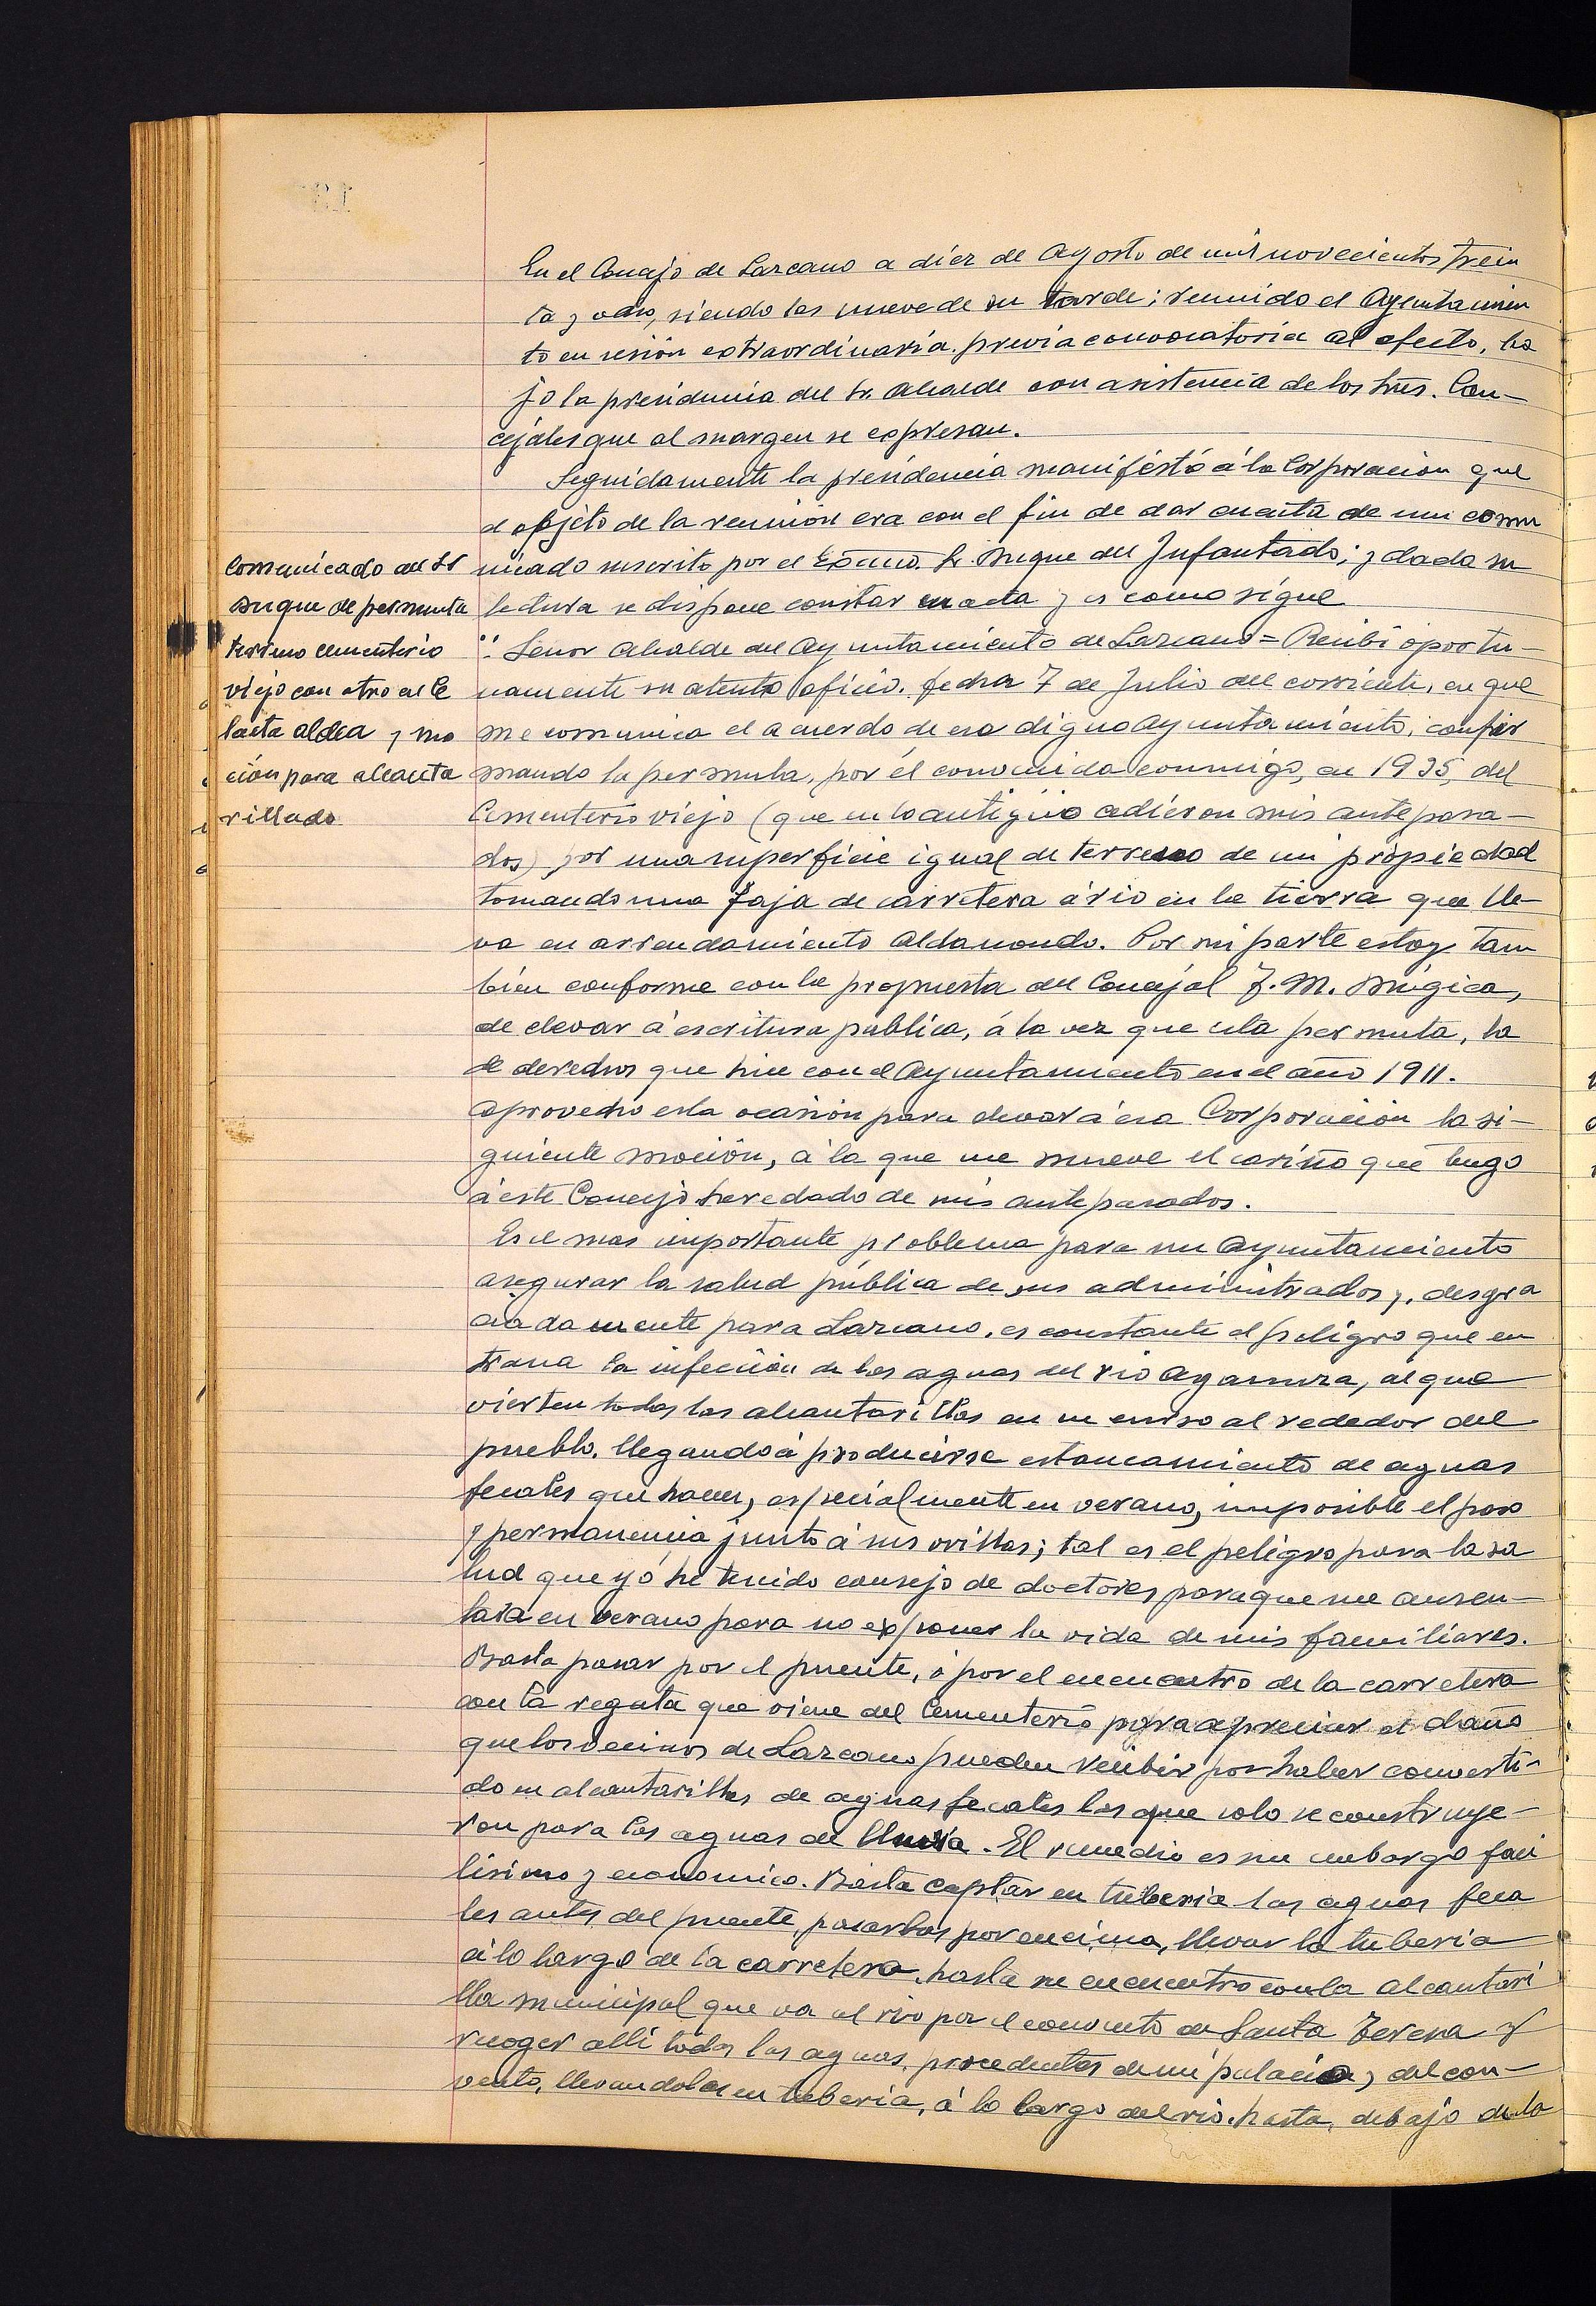 En el Concejo de Lazcano a diez de Agosto de mil novecientos trein
ta y ocho, siendo las nueve de su tarde; reunido el Ayuntamien
to en sesión extraordinaria, previa convocatoria al efecto, ba
jo la presidencia del Sr. Alcalde con asistencia de los Sres. Con-
cejales que al margen se expresan.
Seguidamente la presidencia manifestó á la Corporacion que
el objeto de la reunión era con el fin de dar cuenta de un comu
nicado suscrito por el Excmo. Sr. Duque del Infantado; y dada su
lectura se dispone constar en acta y es como sigue
Comunicado del Sr
Duque de permuta
terreno cementerio
viejo con otro en Ce
lacta aldea y mo
ción para alcanta
rillado
": Señor Alcalde del Ayuntamiento de Lazcano = Recibí oportu-
namente su atento oficio, fecha 7 de Julio del corriente, en que
me comunica el acuerdo de ese digno Ayuntamiento, confir
mando la permuta, por él convenida conmigo, en 1935, del
Cementerio viejo (que en lo antiguo cedieron mis antepasa-
dos) por una superficie igual de terreno de mi propiedad
tomando una faja de carretera á rio en la tierra que lle-
va en arrendamiento Aldanondo. Por mi parte estoy tam
bien conforme con la propuesta del Concejal J. M. Múgica,
de elevar á escritura publica, á la vez que esta permuta, la
de derechos que hice con el Ayuntamiento en el año 1911.
Aprovecho esta ocasión para elevar á esa Corporación la si-
guiente moción, á la que me mueve el cariño que tengo
á este Concejo heredado de mis antepasados.
Es el mas importante problema para un Ayuntamiento
asegurar la salud pública de sus administrados y, desgra
ciadamente para Lazcano, es constante el peligro que en
traña la infección de las aguas del rio Agaunza, al que
vierten todas las alcantarillas en su curso al rededor del
pueblo, llegando á producirse estancamiento de aguas
fecales que hacen, especialmente en verano, imposible el paso
y permanencia junto á sus orillas; tal es el peligro para la sa
lud que yó he tenido consejo de doctores para que me ausen-
tara en verano para no exponer la vida de mis familiares.
Basta pasar por el puente, ó por el encuentro de la carretera
con la regata que viene del Cementerio para apreciar el daño
que los vecinos de Lazcano pueden recibir por haber converti-
do en alcantarillas de aguas fecales las que solo se construye-
ron para las aguas de lluvia. El remedio es sin embargo faci
lisimo y economico. Basta captar en tuberia las aguas feca
les antes del puente, pasarlas por encima, llevar la tuberia
á lo largo de la carretera, hasta su encuentro con la alcantari
lla municipal que va al rio por el convento de Santa Teresa y
recoger allí todas las aguas, procedentes de mi palacio y del con-
vento, llevandolas en tuberia, á lo largo del rio, hasta, debajo de la